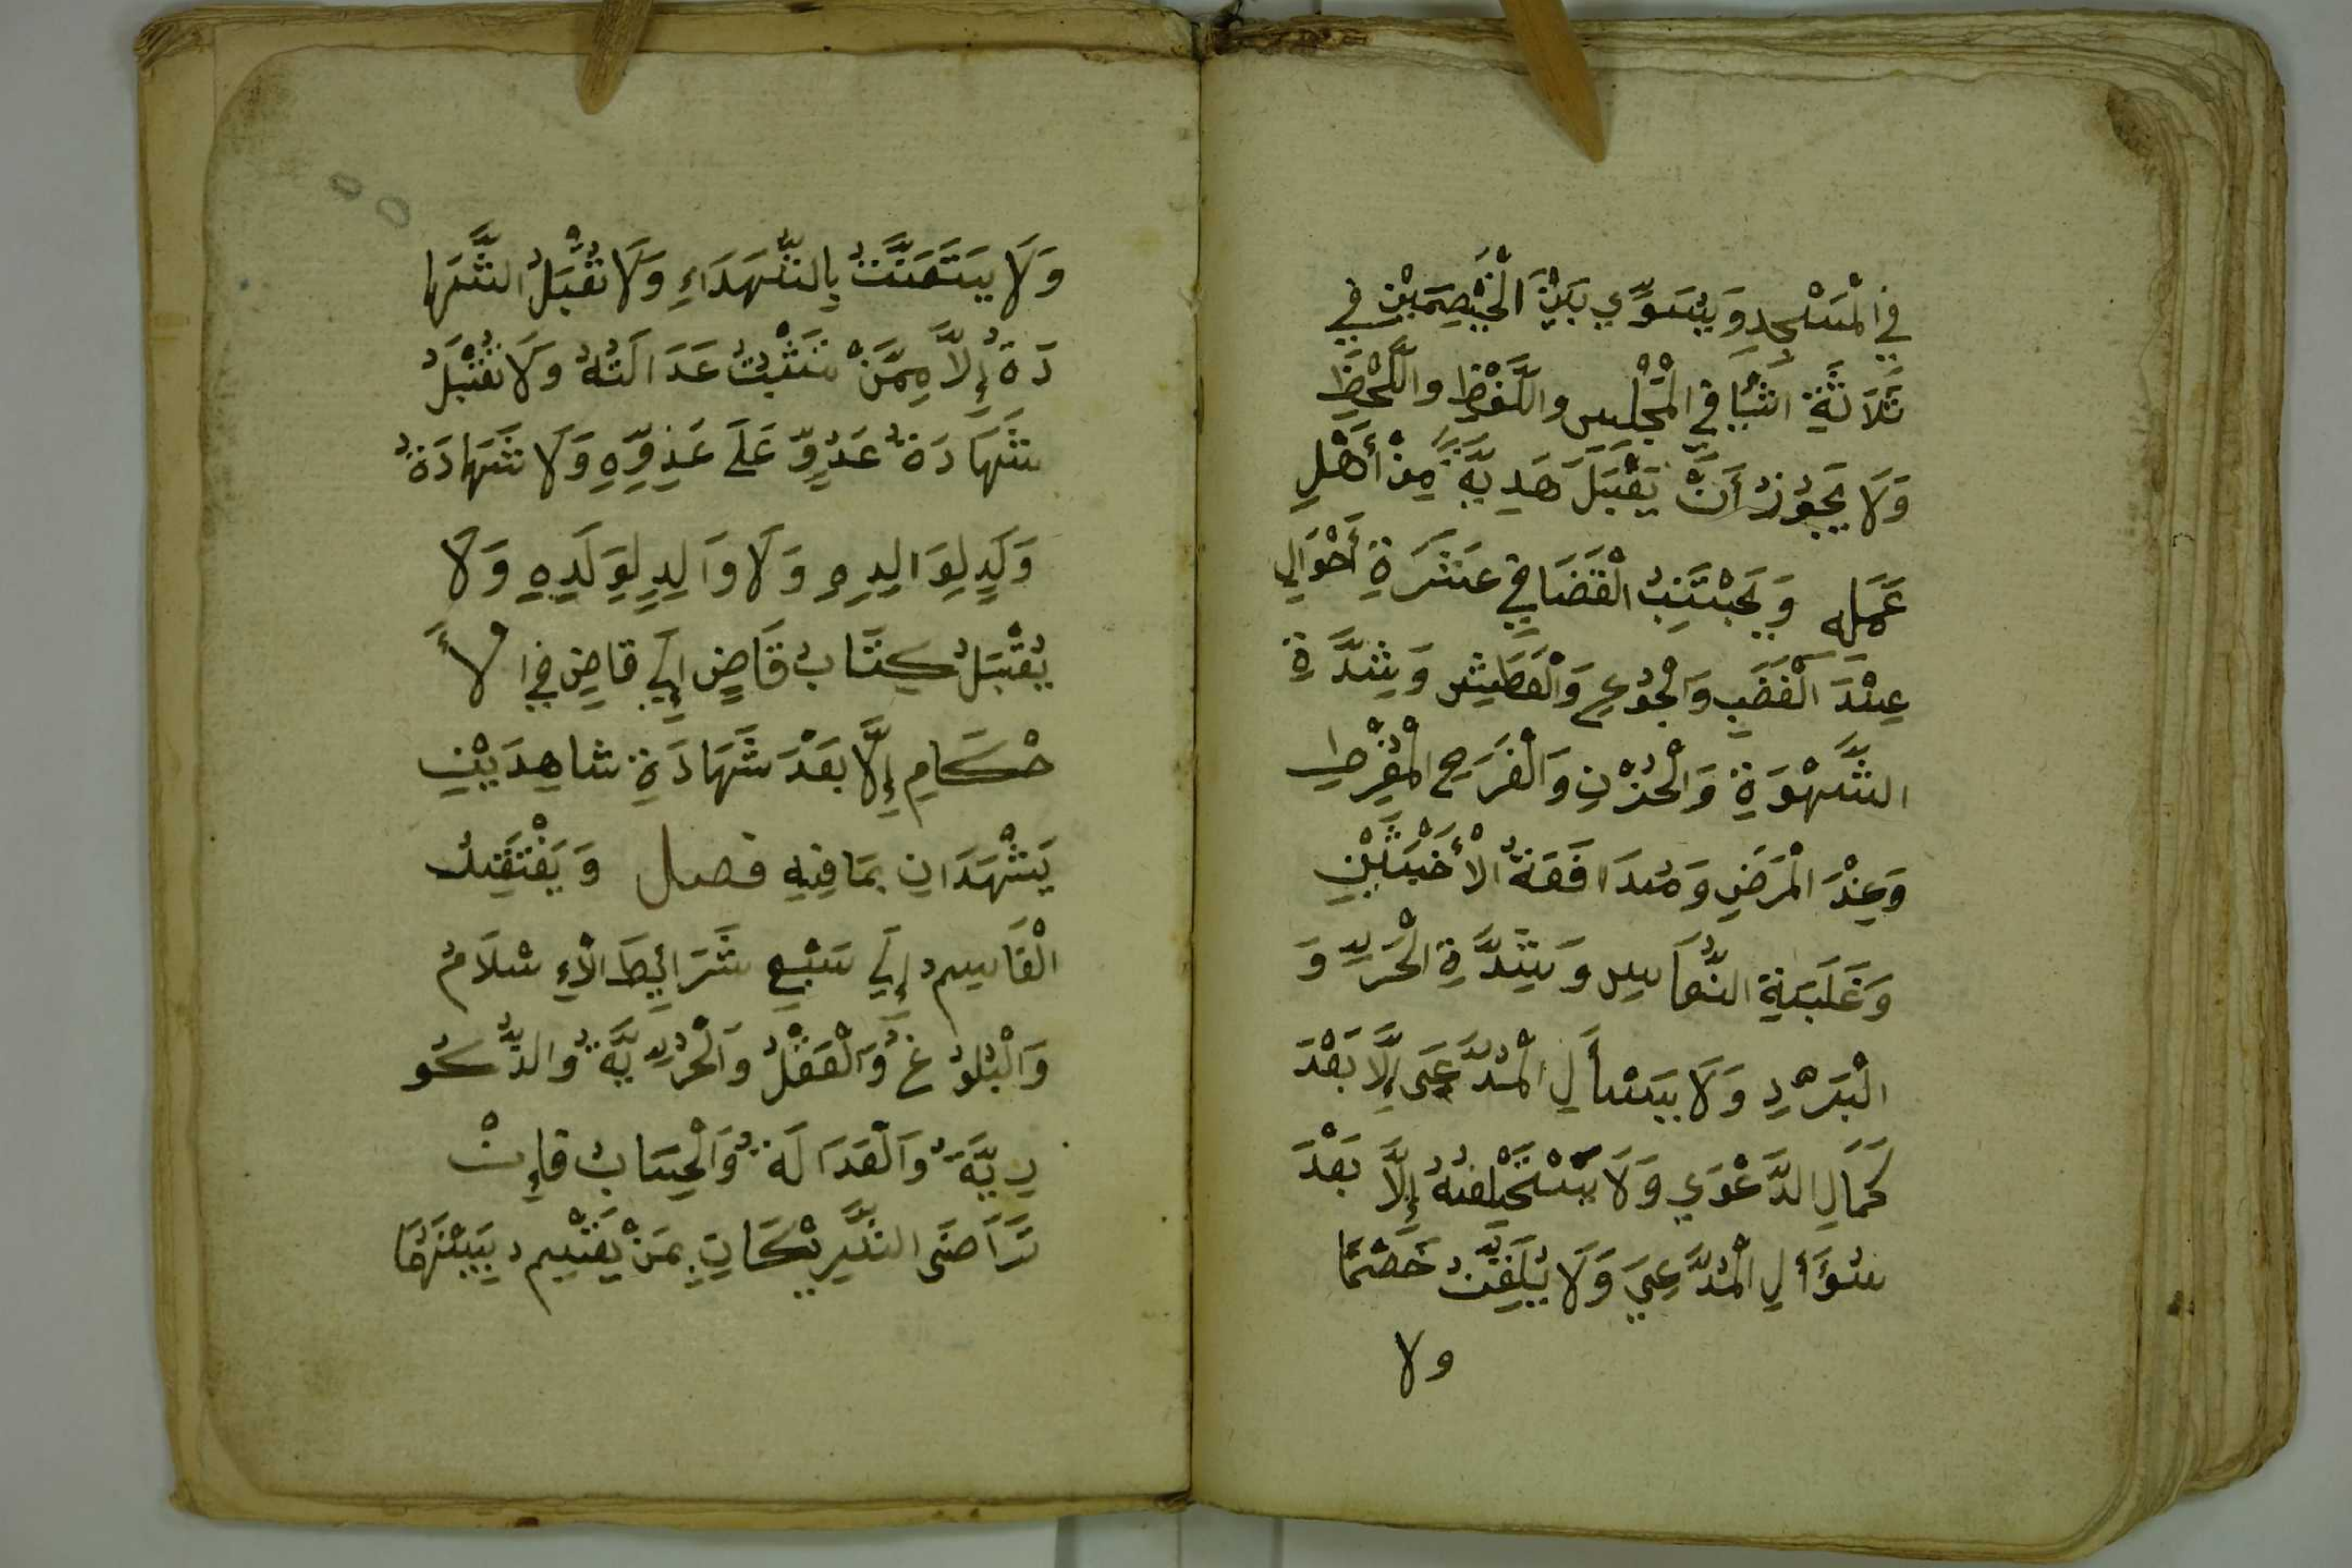 فِي الْمَسْجِدِ وَيُسَوِّي بَيْنَ الْخَصِمَيْنِ فِي
ثَلَاثَةِ اشْيَا فِي الْمَجْلِسِ وَاللَّفْظِ وَاللَّحْظِ
وَلَا يَجُوزُ أَنْ يَقْبَلَ هَدِيَّةً مِنْ أَهْلِ
عَمَلِهِ وَيَجْتَنِبُ الْقَضَا فِي عَشَرَةِ أَحْوَالٍ
عِنْدَ الْغَضَبِ وَالْجُوعِ وَالْعَطَشِ وَشِدَّةِ
الشَّهْوَةِ وَالْحُزْنِ وَالْفَرَحِ الْمُفْرِطِ
وَعِنْدَ الْمَرَضِ وَمُدَافَعَةُ الْأَخْبَثَيْنِ
وَغَلَبَةِ النُّعَاسِ وَشِدَّةِ الْحَرِّ وَ
الْبَرْدِ وَلَا يَسْأَلِ الْمُدَّعَى إِلَّا بَعْدَ
كَمَالِ الدَّعْوَي وَلَا يَسْتَحْلِفُهُ إِلَّا بَعْدَ
سُؤَالِ الْمُدَّعِيَ وَلَا يُلَقِّنُ خَصْمًا
ولا
وَلَا يَتَعَنَّتُ بِالشُّهَدَاءِ وَلَا تُقْبَلُ الشَّهَا
دَةَ إِلَّا مِمَّنْ تَثْبُتُ عَدَالَتُهُ وَلَا تُقْبَلُ
شَهَادَةُ عَدُوٍّ عَلَى عَدُوِّهِ وَلَا شَهَادَةُ
وَلَدٍ لِوَالِدِهِ وَلَا وَالِدٍ لِوَلَدِهِ وَلَا
يُقْبَلُ كِتَابُ قَاضٍ إِلَي قاضٍ فِي الْأَ
حْكَامِ إِلَّا بَعْدَ شَهَادَةِ شاهِدَيْنِ
يَشْهَدَانِ بِمَا فِيهِ فصل وَيَفْتَقِرُ
الْقَاسِمُ إِلَي سَبْعِ شَرَائِطَ الْإِسْلَامُ
وَالْبُلُوغُ وَالْعَقْلُ وَالْحُرِّيَّةُ وَالذُّكُو
رِيَّةُ وَالْعَدَالَةُ وَالْحِسَابُ فَإِنْ
تَرَاضَى الشَّرِيْكَانِ بِمَنْ يَقْسِمُ بَيْنَهُمَا